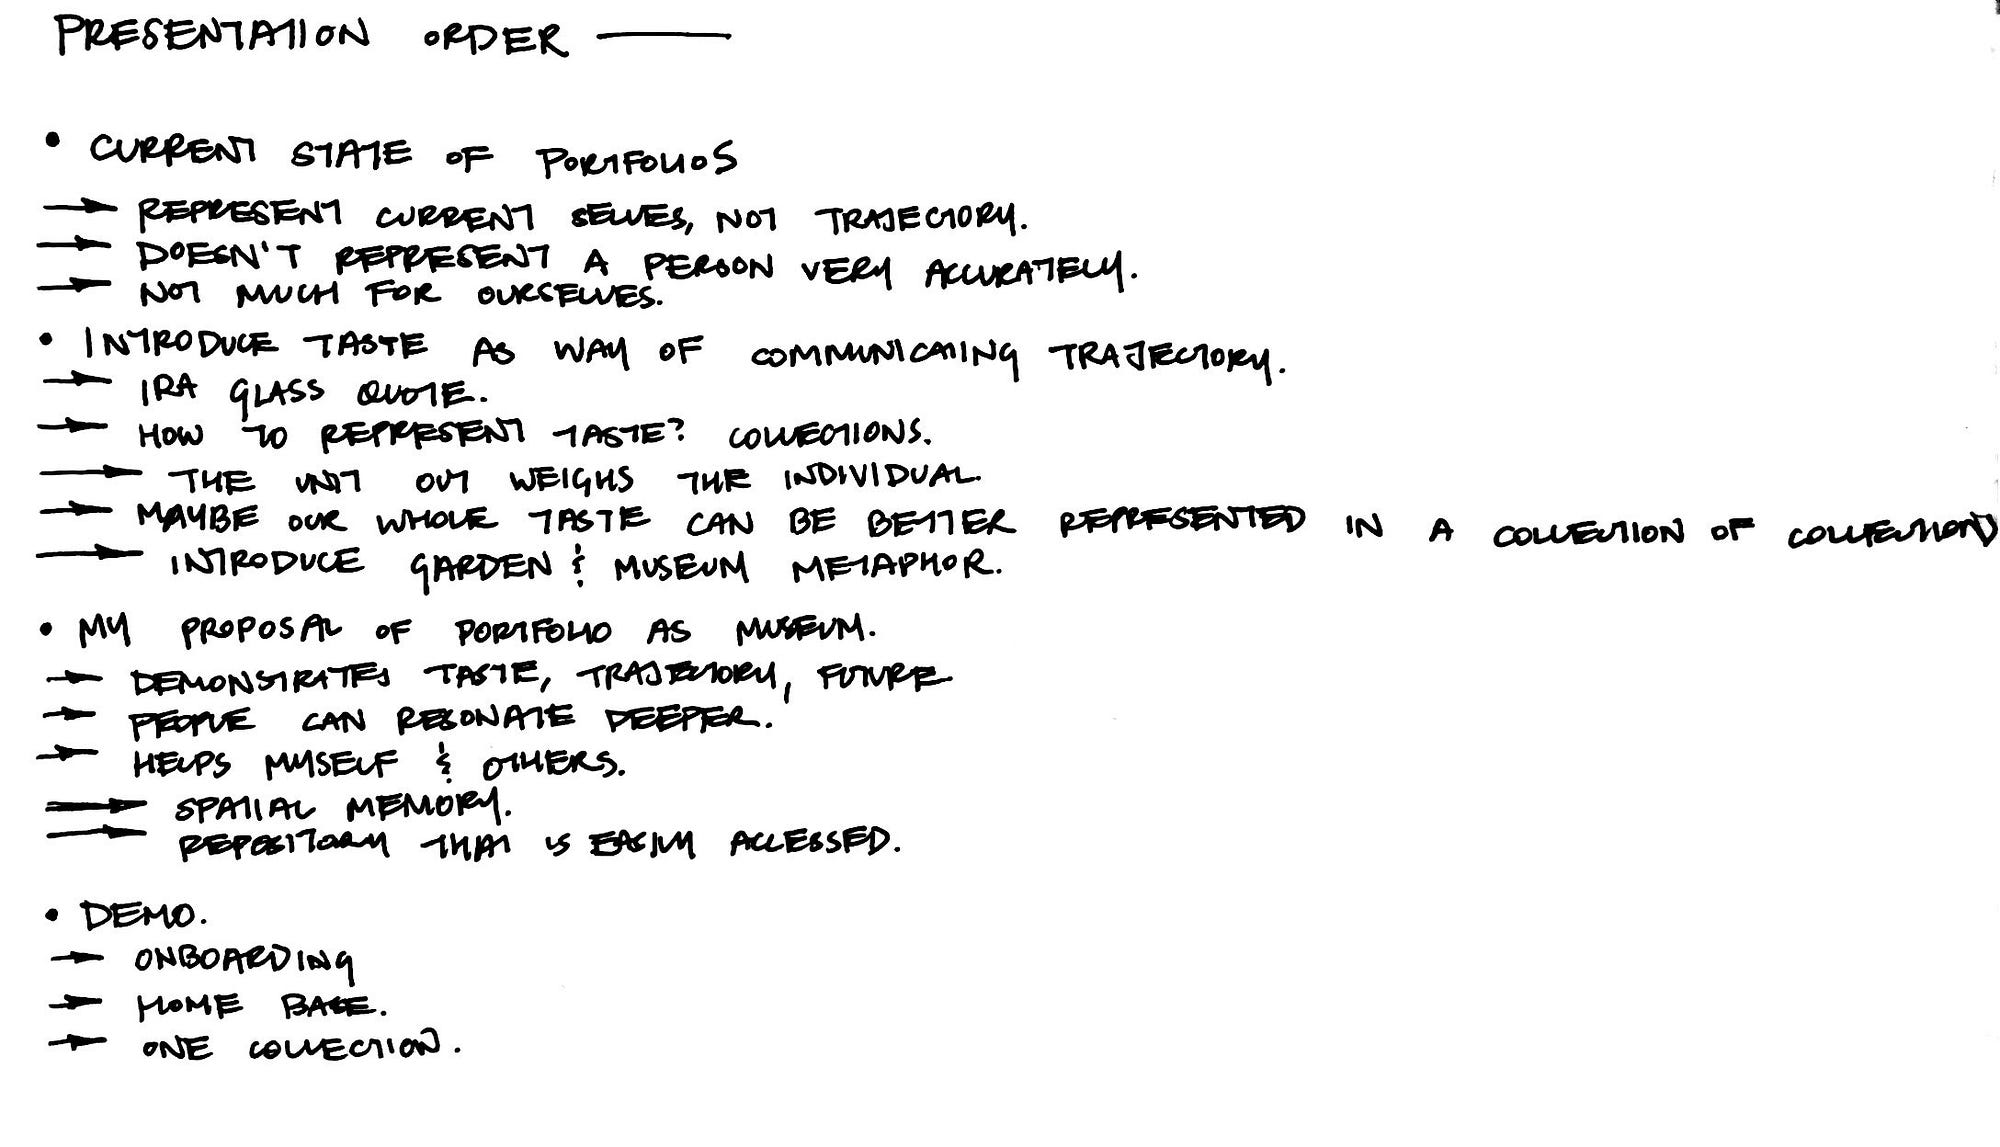 PRESENTATION ORDER —
• CURRENT STATE OF PORTFOLIOS
→ REPRESENT CURRENT SELVES, NOT TRAJECTORY.
→ DOESN'T REPRESENT A PERSON VERY ACCURATELY.
→ NOT MUCH FOR OURSELVES.
• INTRODUCE TASTE AS WAY OF COMMUNICATING TRAJECTORY.
→ IRA GLASS QUOTE.
→ HOW TO REPRESENT TASTE? COLLECTIONS.
→ THE UNIT OUT WEIGHS THE INDIVIDUAL.
→ MAYBE OUR WHOLE TASTE CAN BE BETTER REPRESENTED IN A COLLECTION OF COLLECTIONS
→ INTRODUCE GARDEN & MUSEUM METAPHOR.
• MY PROPOSAL OF PORTFOLIO AS MUSEUM.
→ DEMONSTRATES TASTE, TRAJECTORY, FUTURE
→ PEOPLE CAN RESONATE DEEPER.
→ HELPS MYSELF & OTHERS.
→ SPATIAL MEMORY.
→ REPOSITORY THAT IS EASILY ACCESSED.
• DEMO.
→ ONBOARDING
→ HOME BASE.
→ ONE COLLECTION.